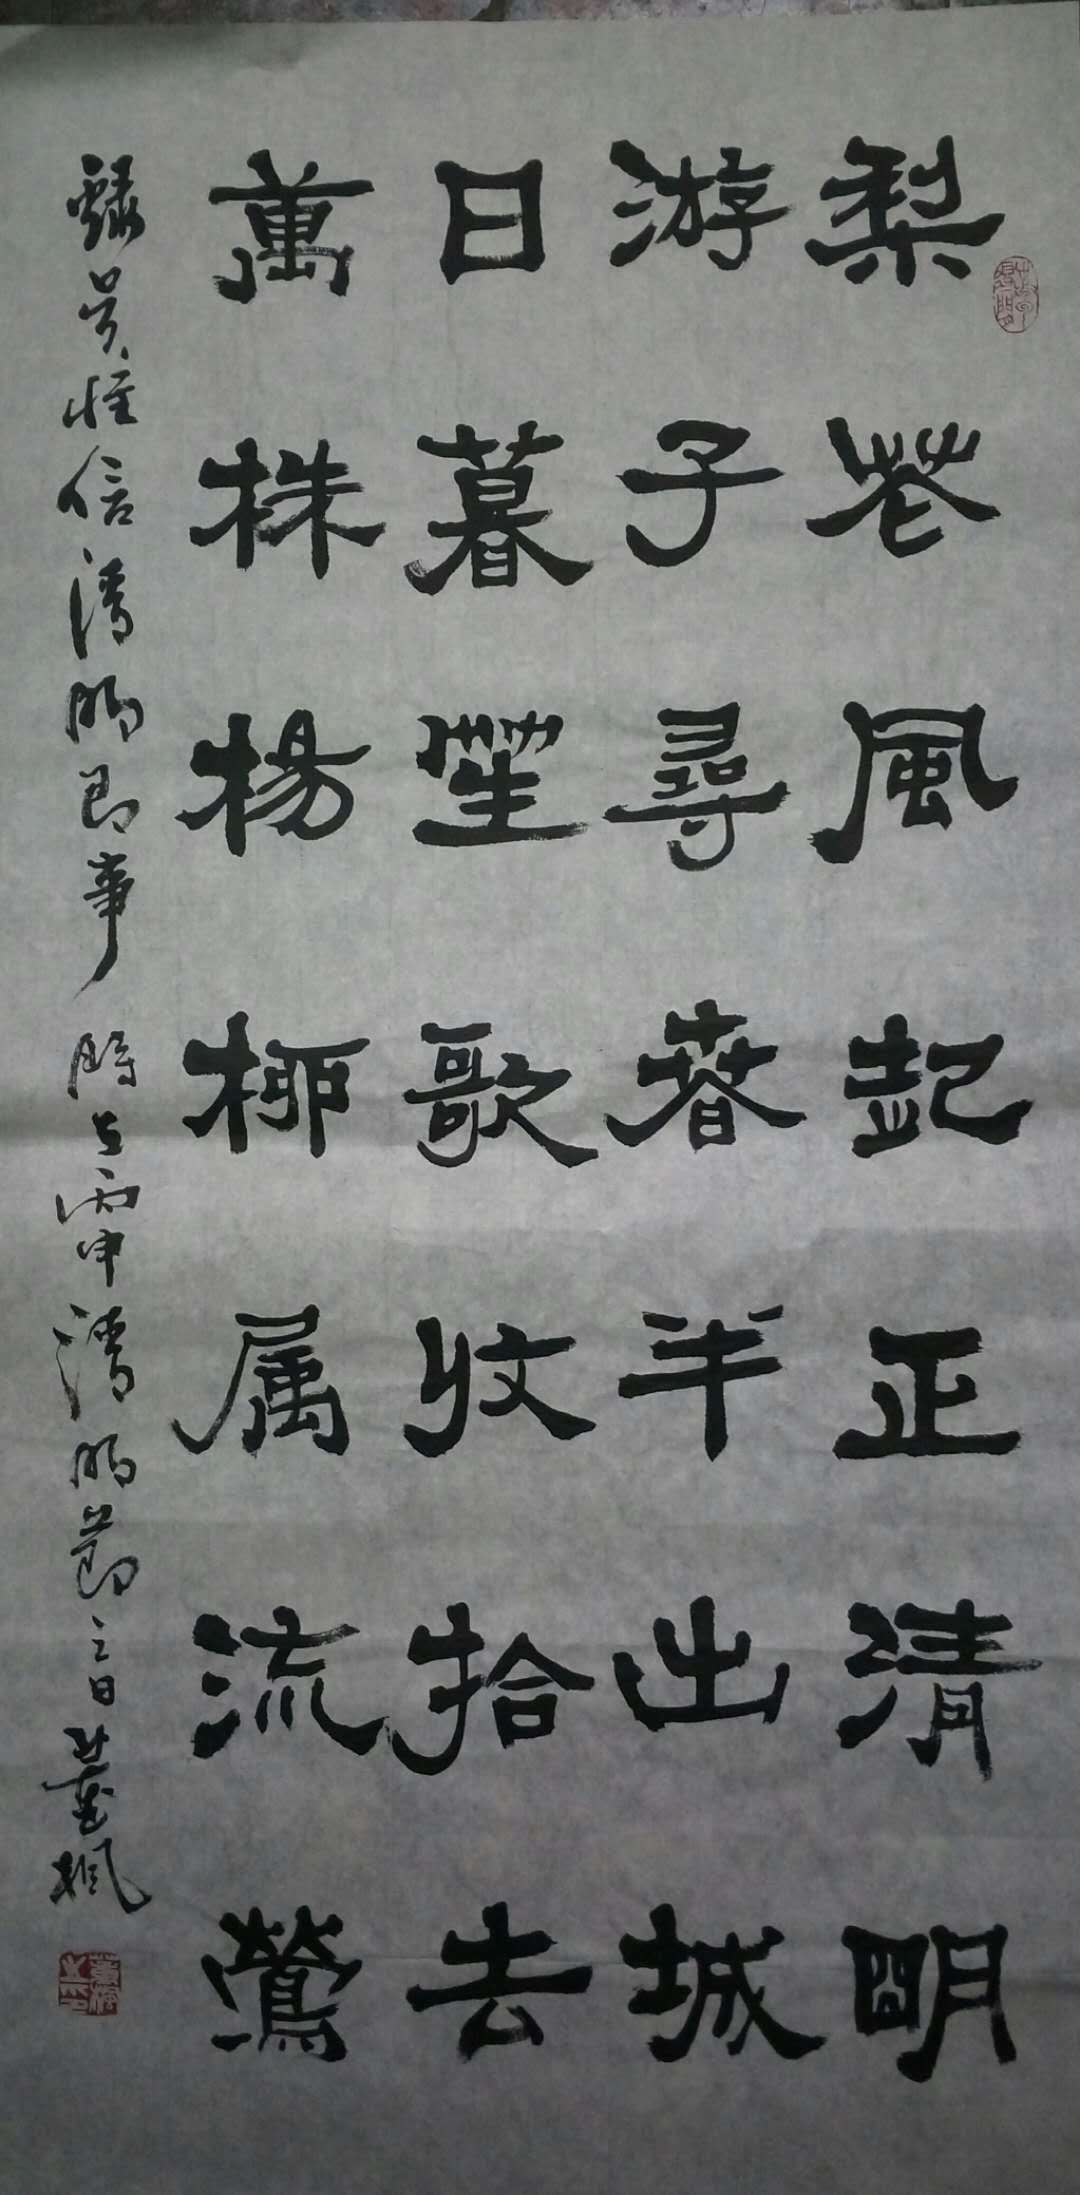 梨花風起正清明
游子尋春半出城
日暮笙歌收拾去
萬株楊柳属流鶯
録吴惟信清明即事 時在丙申清明節之日 葉枫